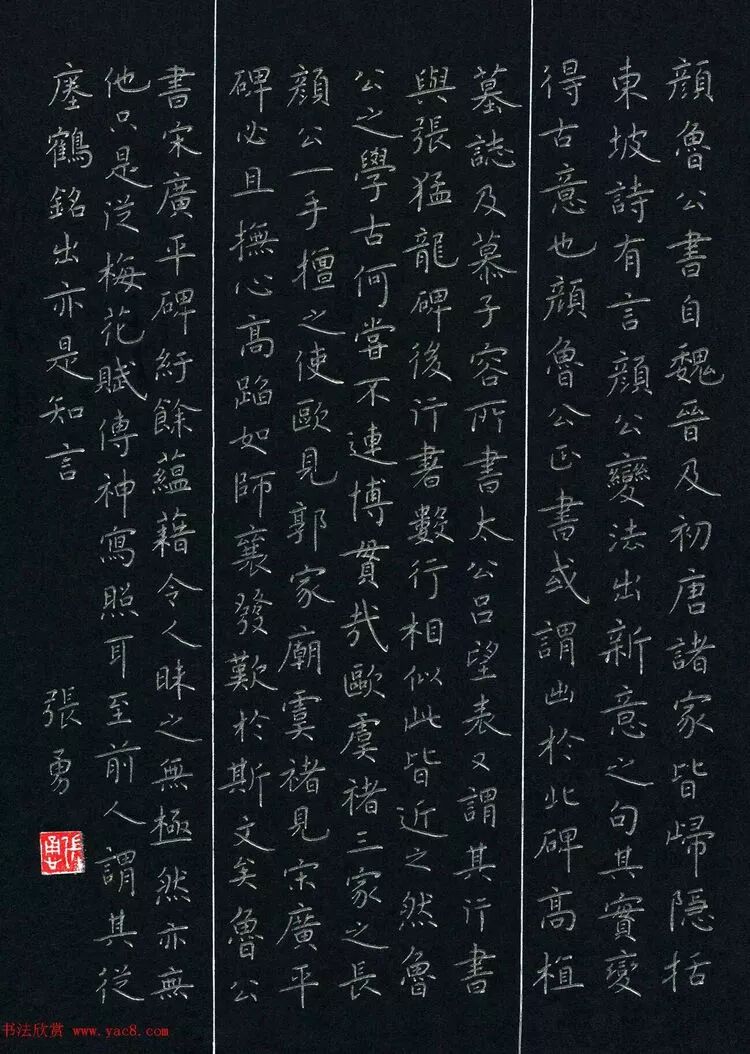 顔魯公書自魏晉及初唐諸家皆歸隱括
東坡詩有言顔公變法出新意之句其實變
得古意也顔魯公正書或謂出於北碑高植
墓誌及慕子容所書太公呂望表又謂其行書
與張猛龍碑後行書數行相似此皆近之然魯
公之學古何嘗不連博貫哉歐虞褚三家之長
顔公一手擅之使歐見郭家廟虞褚見宋廣平
碑必且撫心高蹈如師襄發歎於斯文矣魯公
書宋廣平碑紆餘蘊藉令人味之無極然亦無
他只是從梅花賦傳神寫照耳至前人謂其從
瘞鶴銘出亦是知言
張勇
張勇
书法欣赏 www.yac8.com